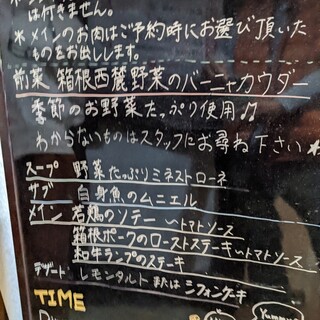 は付きません。
* メインのお肉はご予約時にお選び頂いた
ものをお出しします。
前菜 箱根西麓野菜のバーニャカウダー
季節のお野菜たっぷり使用♫
わからないものはスタッフにお尋ね下さい★
スープ 野菜たっぷりミネストローネ
サブ 白身魚のムニエル
メイン 若鶏のソテー 〜トマトソース
箱根ポークのローストステーキ〜トマトソース
和牛ランプのステーキ
デザート レモンタルト または シフォンケーキ
TIME